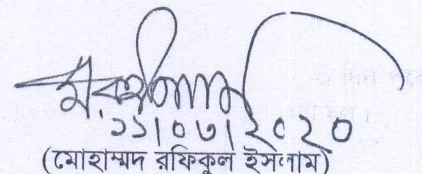 ১১|০৩|২০২০
(মোহাম্মদ রফিকুল ইসলাম)